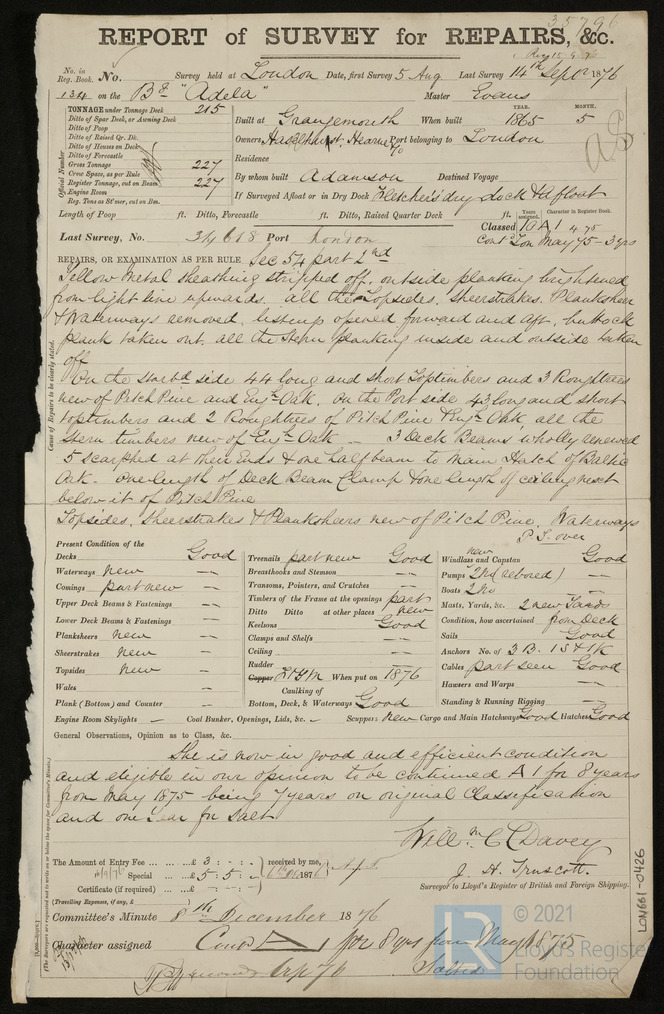 35796
REPORT of SURVEY for REPAIRS, &c.
No. in Reg. Book. No. Survey held at London Date, first Survey 5 Aug Last Survey 14th Septr 1876
134 on the Bk "Adela" Master Evans
TONNAGE under Tonnage Deck 215
Ditto of Spar Deck, or Awning Deck
Ditto of Poop
Ditto of Raised Qr. Dk.
Ditto of Houses on Deck
Ditto of Forecastle
Gross Tonnage 227
Crew Space, as per Rule
Register Tonnage, cut on Beam 227
Engine Room
Reg. Tons as St'mer, cut on Bm.
Official Number
Built at Grangemouth When built YEAR. 1865 MONTH. 5
Owners Haselhurst, Hearne & Co Port belonging to London
Residence
By whom built Adamson Destined Voyage
If Surveyed Afloat or in Dry Dock Fletchers dry dock & afloat
Length of Poop ft. Ditto, Forecastle ft. Ditto, Raised Quarter Deck ft.
Years assigned. Character in Register Book.
Classed 10 A1 4.75
Last Survey, No. 34618 Port London Contd Lon May 75 - 3 yrs
REPAIRS, OR EXAMINATION AS PER RULE Sec 54 part 2nd
Yellow Metal sheathing stripped off, outside planking brightened
from light line upwards. all the Topsides, Sheerstrakes, Planksheers
& Waterways removed, listings opened forward and aft, buttock
plank taken out, all the Stern planking inside and outside taken
off
On the starbd side 44 long and short Toptimbers and 3 Roughtrees
new of Pitch Pine and Engh Oak. On the Port side 43 long and short
toptimbers and 2 Roughtrees of Pitch Pine & Engh Oak, all the
Stern timbers new of Engh Oak - 3 Deck Beams wholly renewed
5 scarphed at their Ends & one half beam to Main Hatch of Baltic
Oak. One length of Deck Beam Clamp & one length of ceiling next
below it of Pitch Pine
Topsides, Sheerstrakes & Planksheers new of Pitch Pine, Waterways
P.T. over
Cause of Repairs to be clearly stated.
Present Condition of the
Decks Good
Waterways new —
Comings part new —
Upper Deck Beams & Fastenings —
Lower Deck Beams & Fastenings —
Planksheers new —
Sheerstrakes new —
Topsides new —
Wales —
Plank (Bottom) and Counter —
Engine Room Skylights —
Treenails part new Good
Breasthooks and Stemson —
Transoms, Pointers, and Crutches —
Timbers of the Frame at the openings part
Ditto Ditto at other places new
Keelsons Good
Clamps and Shelfs —
Ceiling —
Rudder —
Copper Y M When put on 1876
Caulking of
Bottom, Deck, & Waterways Good
Coal Bunker, Openings, Lids, &c. —
new
Windlass and Capstan Good
Pumps 2 No (rebored) —
Boats 2 No —
Masts, Yards, &c. 2 new Yards
Condition, how ascertained from Deck
Sails Good
Anchors No. of 3 B. 1 S & 1 K
Cables part seen Good
Hawsers and Warps —
Standing & Running Rigging —
Scuppers new Cargo and Main Hatchways Good Hatches Good
General Observations, Opinion as to Class, &c.
She is now in good and efficient condition
and eligible in our opinion to be continued A1 for 8 years
from May 1875 being 7 years on original Classification
and one year for Salt
Willm C Davey
J. H. Truscott.
Surveyor to Lloyd's Register of British and Foreign Shipping.
The Amount of Entry Fee ... £ 3 : - : -
Special ... £ 5 : 5 : -
Certificate (if required) ... £ - : - : -
received by me,
(Travelling Expenses, if any, £ )
Committee's Minute 8th December 1876
Character assigned Contd A1 for 8 yrs from May 1875
Salted
(The Surveyors are requested not to write on or below the space for Committee's Minute.)
LON661-0426
© 2021
Lloyd's Register
Foundation
LR